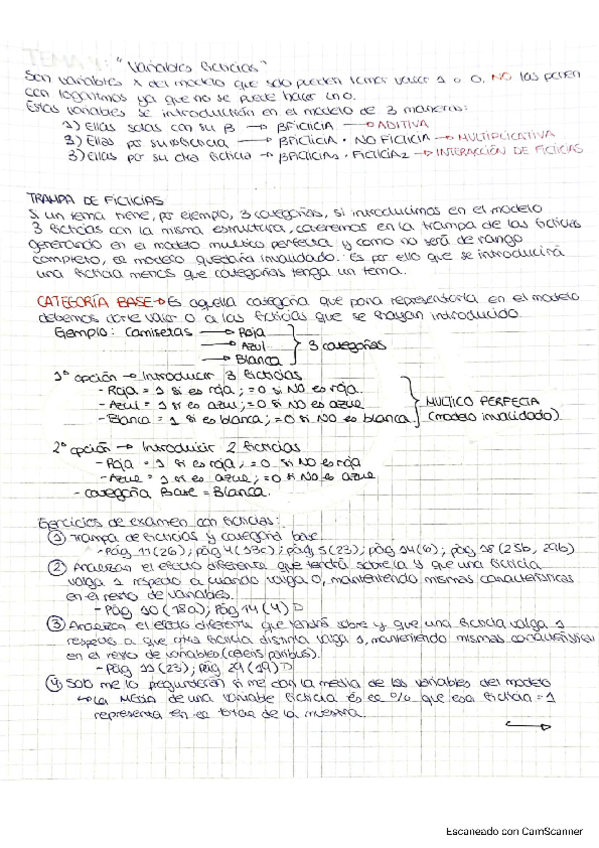 TEMA 4: "Variables ficticias"
Son variables x del modelo que solo pueden tomar valor 1 o 0. NO las ponen
con logaritmos ya que no se puede hacer Ln0.
Estas variables se introducirán en el modelo de 3 maneras:
1) Ellas solas con su β → βFICTICIA → ADITIVA
2) Ellas por → βFICTICIA · NO FICTICIA → MULTIPLICATIVA
3) Ellas por su otra ficticia → βFICTICIA1 · FICTICIA2 → INTERACCIÓN DE FICTICIAS
TRAMPA DE FICTICIAS
Si un tema tiene, por ejemplo, 3 categorías, si introducimos en el modelo
3 ficticias con la misma estructura, caeremos en la trampa de las ficticias
generando en el modelo multico perfecta y como no será de rango
completo, el modelo quedaría invalidado. Es por ello que se introducirá
una ficticia menos que categorías tenga un tema.
CATEGORÍA BASE → Es aquella categoría que para representarla en el modelo
debemos darle valor 0 a las ficticias que se hayan introducido.
Ejemplo: Camisetas → Roja
→ Azul } 3 categorías
→ Blanca
1ª opción → Introducir 3 ficticias
- Roja = 1 si es roja; = 0 si NO es roja.
- Azul = 1 si es azul; = 0 si NO es azul
- Blanca = 1 si es blanca; = 0 si NO es blanca. } MULTICO PERFECTA
(modelo invalidado)
2ª opción → Introducir 2 ficticias
- Roja = 1 si es roja; = 0 si NO es roja
- Azul = 1 si es azul; = 0 si NO es azul
- categoría Base = Blanca.
Ejercicios de examen con ficticias:
① Trampa de ficticias y categoría base.
- Pág 11 (26); pág 4 (13c); pág 5 (23); pág 14 (6); pág 18 (25b, 29b)
② Analizan el efecto diferente que tendrá sobre la y que una ficticia
valga 1 respecto a cuando valga 0, manteniendo mismas características
en el resto de variables.
- Pág 10 (18a); Pág 14 (4)
③ Analizan el efecto diferente que tendrá sobre y que una ficticia valga 1
respecto a que otra ficticia distinta valga 1, manteniendo mismas características
en el resto de variables (ceteris paribus).
- Pág 11 (23); Pág 29 (19)
④ Solo me lo preguntarán si me dan la media de las variables del modelo
→ La MEDIA de una variable ficticia es el % que esa ficticia = 1
representa en el total de la muestra.
Escaneado con CamScanner